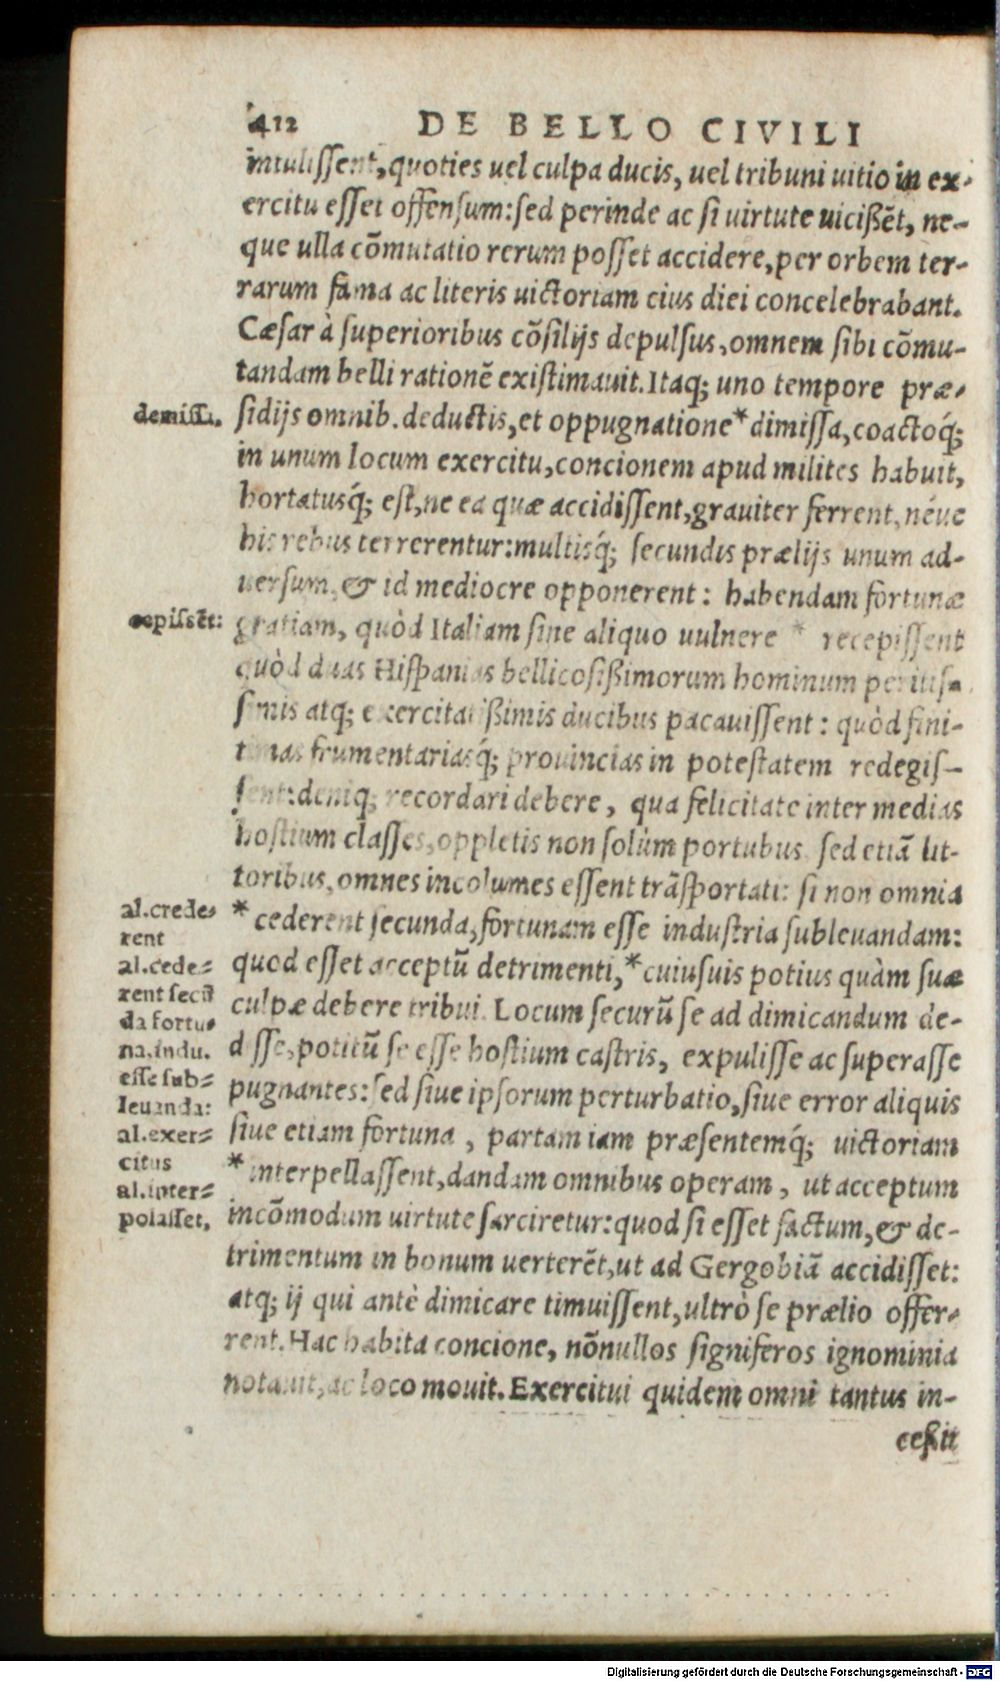 412 DE BELLO CIVILI
intulissent, quoties uel culpa ducis, uel tribuni uitio in ex-
ercitu esset offensum: sed perinde ac si uirtute uicißẽt, ne-
que ulla cõmutatio rerum posset accidere, per orbem ter-
rarum fama ac literis uictoriam eius diei concelebrabant.
Cæsar à superioribus cõsilijs depulsus, omnem sibi cõmu-
tandam belli rationẽ existimauit. Itaq; uno tempore præ-
sidijs omnib. deductis, et oppugnatione * dimissa, coactoq́;
in unum locum exercitu, concionem apud milites habuit,
hortatusq́; est, ne ea quæ accidissent, grauiter ferrent, néue
his rebus terrerentur: multisq́; secundis prælijs unum ad-
uersum, & id mediocre opponerent: habendam fortunæ
gratiam, quòd Italiam sine aliquo uulnere * recepissent
quòd duas Hispanias bellicosißimorum hominum peritis-
simis atq; exercitatißimis ducibus pacauissent: quòd fini-
timas frumentariasq́; prouincias in potestatem redegis-
sent: deniq; recordari debere, qua felicitate inter medias
hostium classes, oppletis non solùm portubus sed etiã lit-
toribus, omnes incolumes essent trãsportati: si non omnia
* cederent secunda, fortunam esse industria subleuandam:
quod esset acceptũ detrimenti, * cuiusuis potius quàm suæ
culpæ debere tribui. Locum securũ se ad dimicandum de-
disse, potitũ se esse hostium castris, expulisse ac superasse
pugnantes: sed siue ipsorum perturbatio, siue error aliquis
siue etiam fortuna, partam iam præsentemq́; uictoriam
* interpellassent, dandam omnibus operam, ut acceptum
incõmodum uirtute sarciretur: quod si esset factum, & de-
trimentum in bonum uerterẽt, ut ad Gergobiã accidisset:
atq; ij qui antè dimicare timuissent, ultrò se prælio offer-
rent. Hac habita concione, nõnullos signiferos ignominia
notauit, ac loco mouit. Exercitui quidem omni tantus in-
ceßit
demissa.
cepissẽt:
al. crede-
rent
al. cede-
rent secũ
da fortu-
na, indu.
esse sub-
leuanda:
al. exer-
citus
al. inter-
polasset,
Digitalisierung gefördert durch die Deutsche Forschungsgemeinschaft - DFG